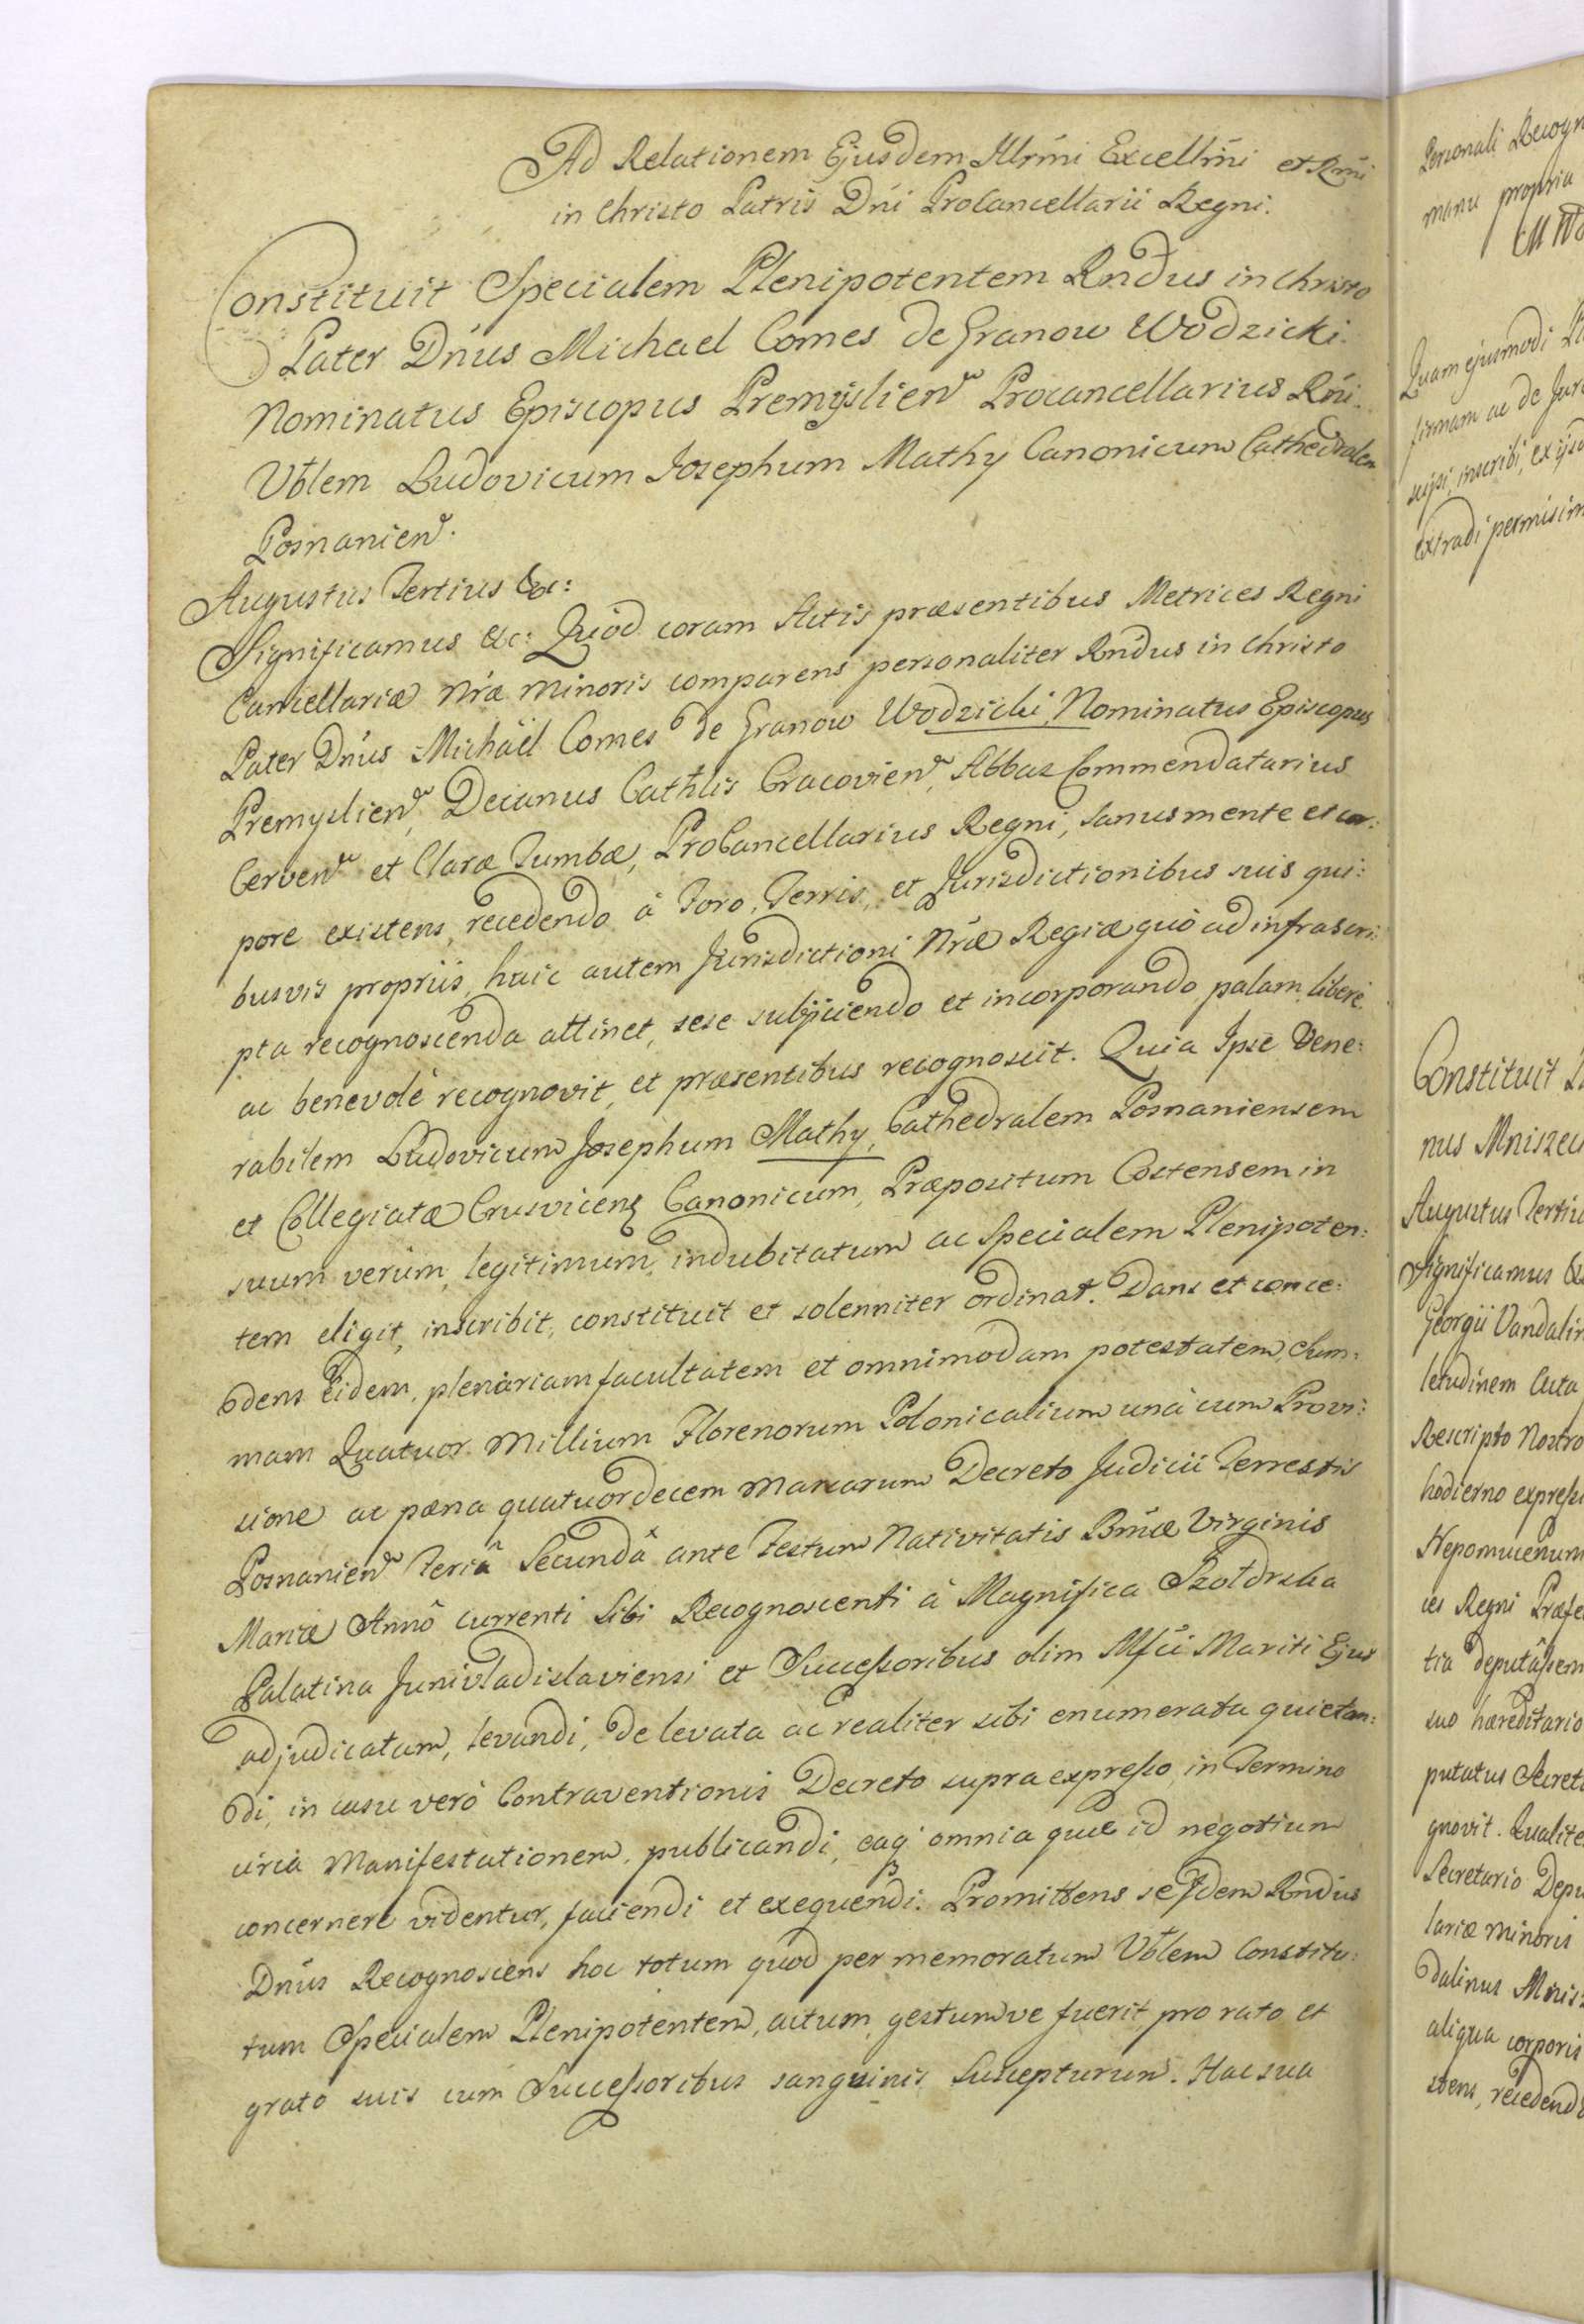 Ad Relationem Ejusdem Illrmi Excellmi et Rmi
in Christo Patris Dni ProCancellarii Regni.
Constituit Specialem Plenipotentem Rndus in Christo
Pater Dnus Michael Comes de Granow Wodzicki
Nominatus Episcopus Premysliens Procancellarius Rni
Vblem Ludovicum Josephum Mathy Canonicum Cathedralem
Posnaniens.
Augustus Tertius &c:
Significamus &c: Quod coram Actis præsentibus Metrices Regni
Cancellariæ Nræ Minoris comparens personaliter Rndus in Christo
Pater Dnus Michaël Comes de Granow Wodzicki, Nominatus Episcopus
Premysliens, Decanus Cathlis Cracoviens, Abbas Commendatarius
Cervens et Claræ Tumbæ, ProCancellarius Regni, sanus mente et cor:
pore existens, recedendo à Foro, Terris, et Jurisdictionibus suis qui:
busvis propriis, huic autem Jurisdictioni Nræ Regiæ quò ad infrascri:
pta recognoscenda attinet, sese subjiciendo et incorporando palam, liberè
ac benevolè recognovit, et præsentibus recognoscit. Quia Ipse Vene:
rabilem Ludovicum Josephum Mathy, Cathedralem Posnaniensem
et Collegiatæ Crusvicens Canonicum, Præpositum Costensem in
suum verum, legitimum, indubitatum ac Specialem Plenipoten:
tem eligit, inscribit, constituit et solenniter ordinat. Dans et conce:
dens Eidem, plenariam facultatem et omnimodam potestatem, Sum:
mam Quatuor Millium Florenorum Polonicalium unà cum Provi:
sione ac pæna quatuordecem Marcarum Decreto Judicii Terrestris
Posnaniens Feriâ Secundâ ante Festum Nativitatis Bmæ Virginis
Mariæ Annô currenti Sibi Recognoscenti à Magnifica Szołdrska
Palatina Junivladislaviensi et Successoribus olim Mfci Mariti Ejus
adjudicatam, levandi, de levata ac realiter sibi enumerata quietan:
di, in casu verò Contraventionis Decreto supra expresso, in Termino
circa Manifestationem, publicandi, eaq omnia quæ id negotium
concernere videntur, faciendi et exequendi. Promittens se Idem Rndus
Dnus Recognoscens hoc totum quod per memoratum Vblem Constitu:
tum Specialem Plenipotentem, actum, gestumve fuerit, pro rato et
grato suis cum Successoribus sanguinis suscepturum. Hac sua
Personali Recogn
manu propria
M Wo
Quam ejusmodi
firmam ac de Jure
scipi, inscribi, ex ijsd
extradi permisim
Constituit
nus Mniszec
Augustus Tertiu
Significamus &
Georgii Vandalin
letudinem Acta
Rescripto Nostro
hodierno express
Nepomucenum
ces Regni Præfe
tia deputâssem
suo hæreditario
putatus Secret
gnovit. Qualite
Secretario Depu
lariæ Minoris
dalinus Mnis
aliqua corporis
stens, recedend